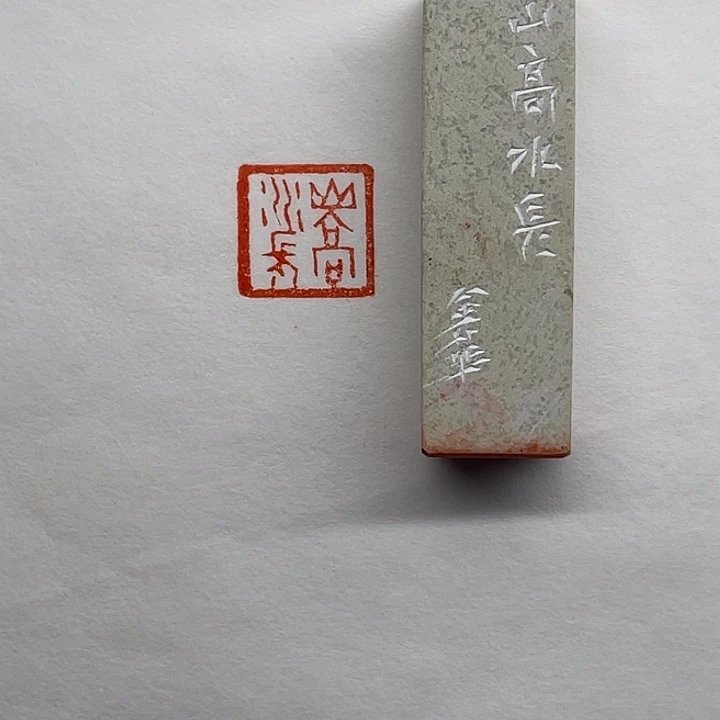 山高
水長
山高水長